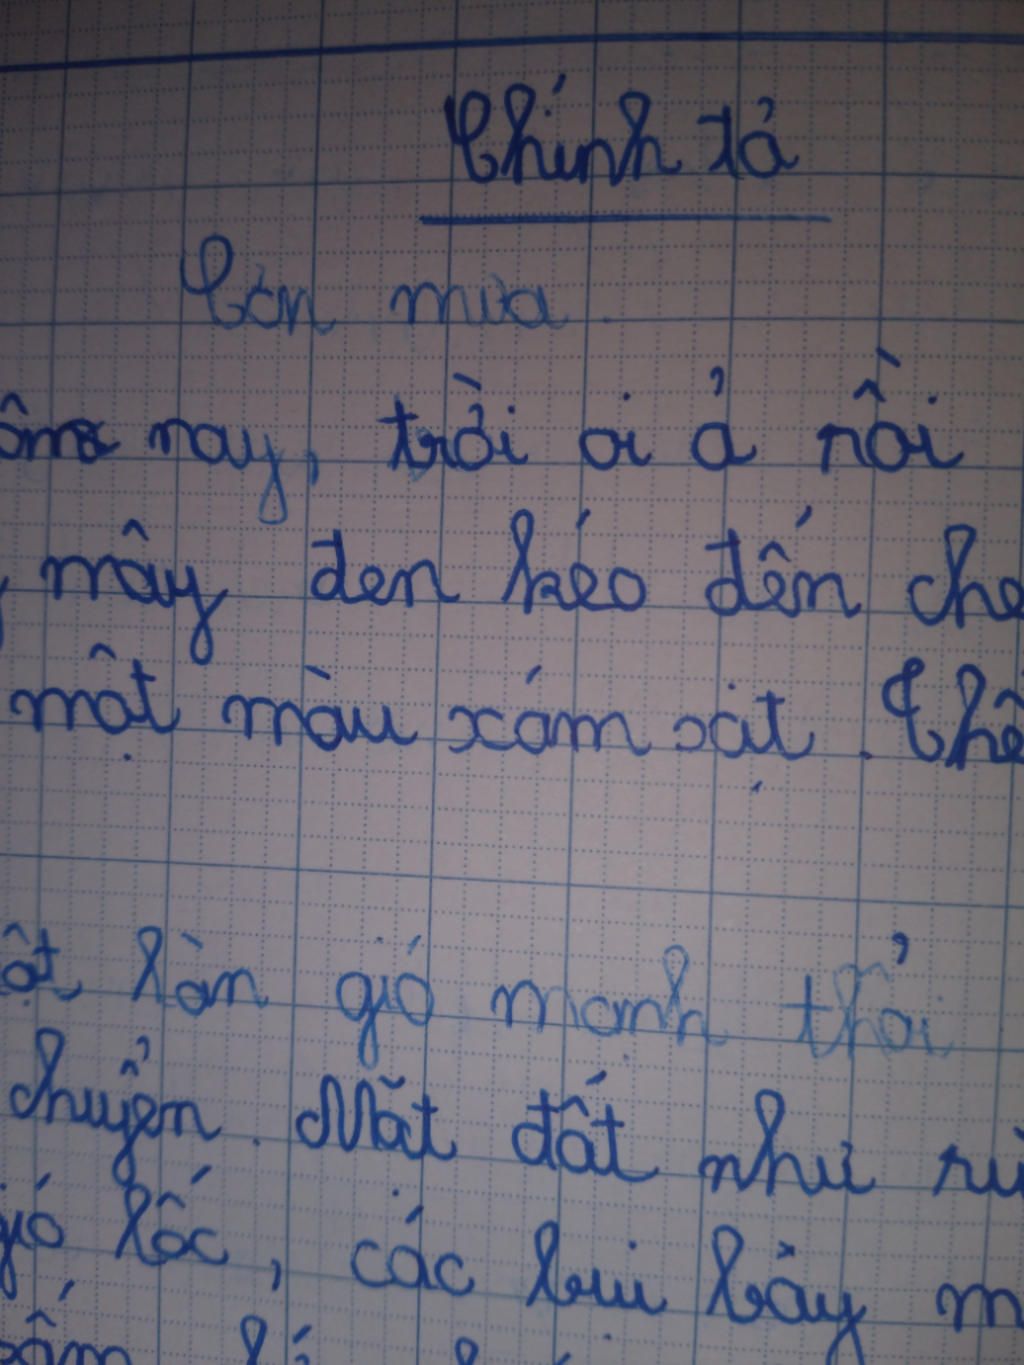 Chính tả
Cơn mưa.
nay, trời oi ả nồi
mây đen kéo đến
một màu xám xịt. Thế
làn gió mạnh thổi
chuyển. Mặt đất như
gió lốc, các bụi bay